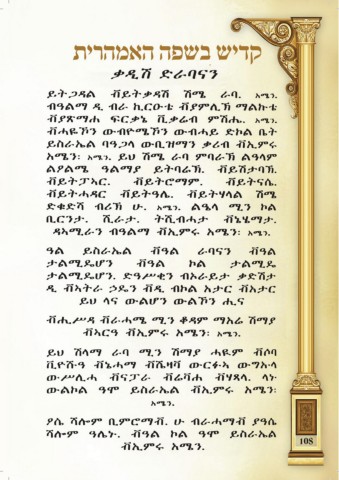 קדיש בשפה האמהרית
ቃዲሽ ድራባናን
ይትጋዳል ቭይትቃዳሽ ሽሜ ራባ. አሜን.
ብዓልማ ዲ ብራ ኪርዑቴ ቭያምሊኽ ማልኩቴ
ቭያጽማህ ፍርቃኔ ቪቃሬብ ምሽሔ. አሜን.
ይስራኤል ባዓጋላ ውቢዝማን ቃሪብ ቭኢምሩ
አሜን፡ አሜን. ይህ ሽሜ ራባ ምባራኽ ልዓላም
ልዖልሜ ዓልማያ ይትባራኽ. ቭይሽታባኽ.
ቭይትፓኣር. ቭይትሮማም. ቭይትናሴ.
ቭይትሓዳር ቭይትዓሌ. ቭይትሃላል ሽሜ
ድቁድሻ ብሪኽ ሁ. አሜን. ልዔላ ሚን ኮል
ቢርንታ. ሺራታ. ትሽብሓታ ቭኔሄማታ.
ዳኣሚራን ብዓልማ ቭኢምሩ አሜን፡ አሜን.
ዓል ይስራኤል ቭዓል ራባናን ቭዓል
ታልሚዴሆን ቭዓል ኮል ታልሚዴ
ታልሚዴሆን. ድዓሥቂን ብኦራይታ ቃድሽታ
ዲ ቭኣትራ ኃዴን ቭዲ ብኮል ኣታር ቭኣታር
ይህ ላና ውልሆን ውልኾን ሒና
ቭሒሥዳ ቭራሓሜ ሚን ቆዳም ማአሬ ሽማያ
ቭኣርዓ ቭኢምሩ አሜን፡ አሜን.
ይህ ሽላማ ራባ ሚን ሽማያ ሓዪም ቭሶባ
ውልኮል ዓሞ ይስራኤል ቭኢምሩ አሜን፡
አሜን.
ዖሴ ሻሎም ቢምሮማቭ. ሁ ብራሓማቭ ያዓሴ
ሻሎም ዓሌኑ. ቭዓል ኮል ዓሞ ይስራኤል
ቭኢምሩ አሜን.
108